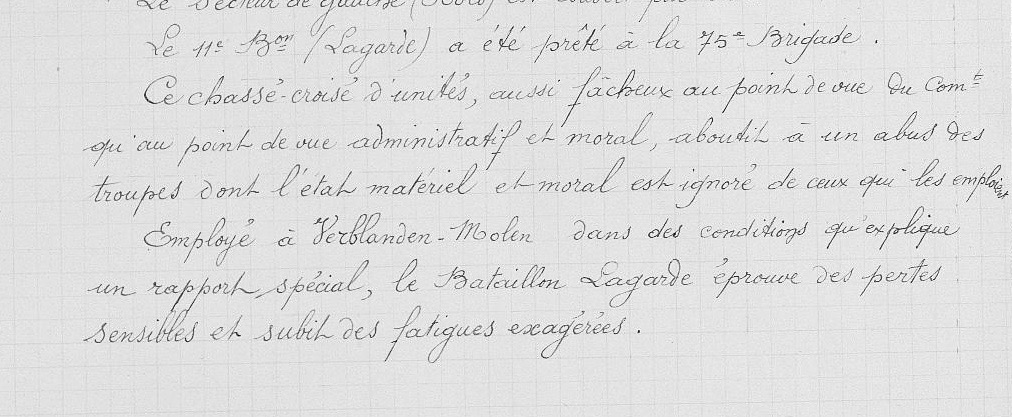 Le Secteur de gauche
Le 11e Bon (Lagarde) a été prêté à la 75e Brigade.
Ce chassé-croisé d'unités, aussi fâcheux au point de vue du Comt
qu'au point de vue administratif et moral, aboutit à un abus des
troupes dont l'état matériel et moral est ignoré de ceux qui les emploient
Employé à Verblanden-Molen dans des conditions qu'explique
un rapport spécial, le Bataillon Lagarde éprouve des pertes
sensibles et subit des fatigues exagérées.